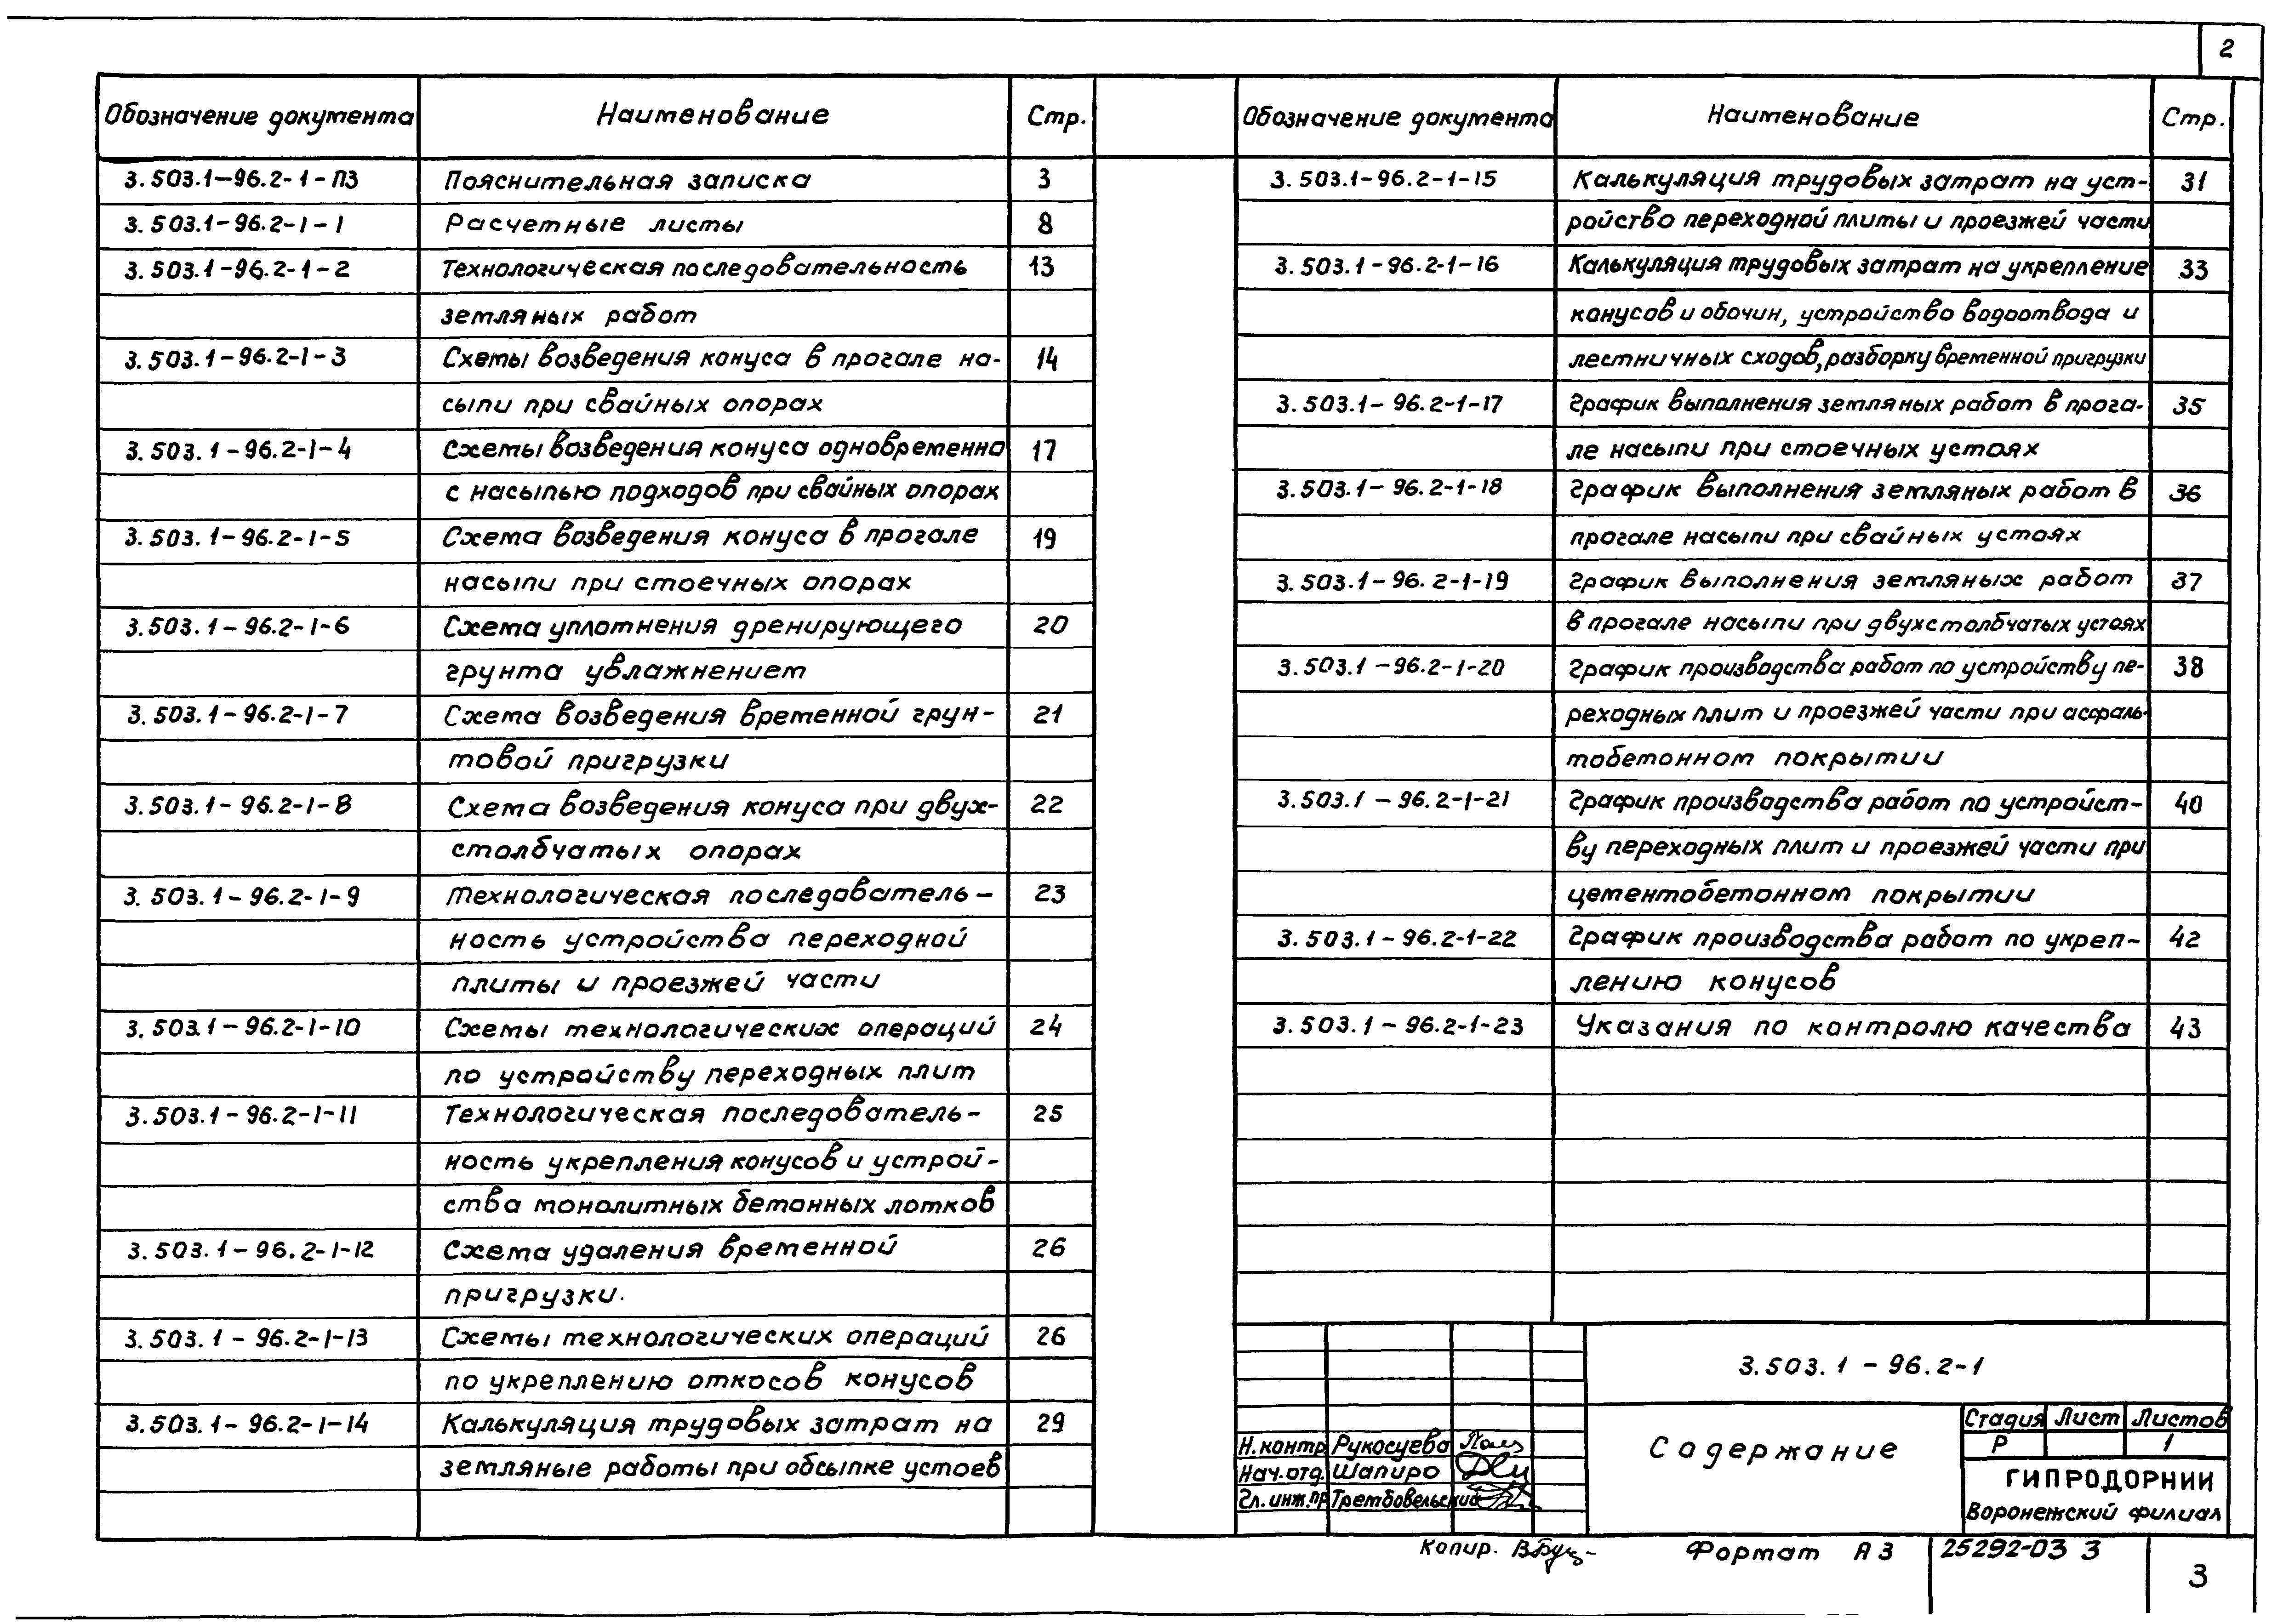 2
Обозначение документа Наименование Стр.
3.503.1-96.2-1-ПЗ Пояснительная записка 3
3.503.1-96.2-1-1 Расчетные листы 8
3.503.1-96.2-1-2 Технологическая последовательность 13
земляных работ
3.503.1-96.2-1-3 Схемы возведения конуса в прогале на- 14
сыпи при свайных опорах
3.503.1-96.2-1-4 Схемы возведения конуса одновременно 17
с насыпью подходов при свайных опорах
3.503.1-96.2-1-5 Схема возведения конуса в прогале 19
насыпи при стоечных опорах
3.503.1-96.2-1-6 Схема уплотнения дренирующего 20
грунта увлажнением
3.503.1-96.2-1-7 Схема возведения временной грун- 21
товой пригрузки
3.503.1-96.2-1-8 Схема возведения конуса при двух- 22
столбчатых опорах
3.503.1-96.2-1-9 Технологическая последователь- 23
ность устройства переходной
плиты и проезжей части
3.503.1-96.2-1-10 Схемы технологических операций 24
по устройству переходных плит
3.503.1-96.2-1-11 Технологическая последователь- 25
ность укрепления конусов и устрой-
ства монолитных бетонных лотков
3.503.1-96.2-1-12 Схема удаления временной 26
пригрузки.
3.503.1-96.2-1-13 Схемы технологических операций 26
по укреплению откосов конусов
3.503.1-96.2-1-14 Калькуляция трудовых затрат на 29
земляные работы при обсыпке устоев
Обозначение документа Наименование Стр.
3.503.1-96.2-1-15 Калькуляция трудовых затрат на уст- 31
ройство переходной плиты и проезжей части
3.503.1-96.2-1-16 Калькуляция трудовых затрат на укрепление 33
конусов и обочин, устройство водоотвода и
лестничных сходов, разборку временной пригрузки
3.503.1-96.2-1-17 График выполнения земляных работ в прога- 35
ле насыпи при стоечных устоях
3.503.1-96.2-1-18 График выполнения земляных работ в 36
прогале насыпи при свайных устоях
3.503.1-96.2-1-19 График выполнения земляных работ 37
в прогале насыпи при двухстолбчатых устоях
3.503.1-96.2-1-20 График производства работ по устройству пе- 38
реходных плит и проезжей части при асфаль-
тобетонном покрытии
3.503.1-96.2-1-21 График производства работ по устройст- 40
ву переходных плит и проезжей части при
цементобетонном покрытии
3.503.1-96.2-1-22 График производства работ по укреп- 42
лению конусов
3.503.1-96.2-1-23 Указания по контролю качества 43
3.503.1-96.2-1
Содержание
Стадия Лист Листов
Р 1
Н.контр Рукосуева
Нач.отд. Шапиро
Гл.инж.пр Третбовельский
ГИПРОДОРНИИ
Воронежский филиал
Копир.
Формат А3
25292-03 3
3